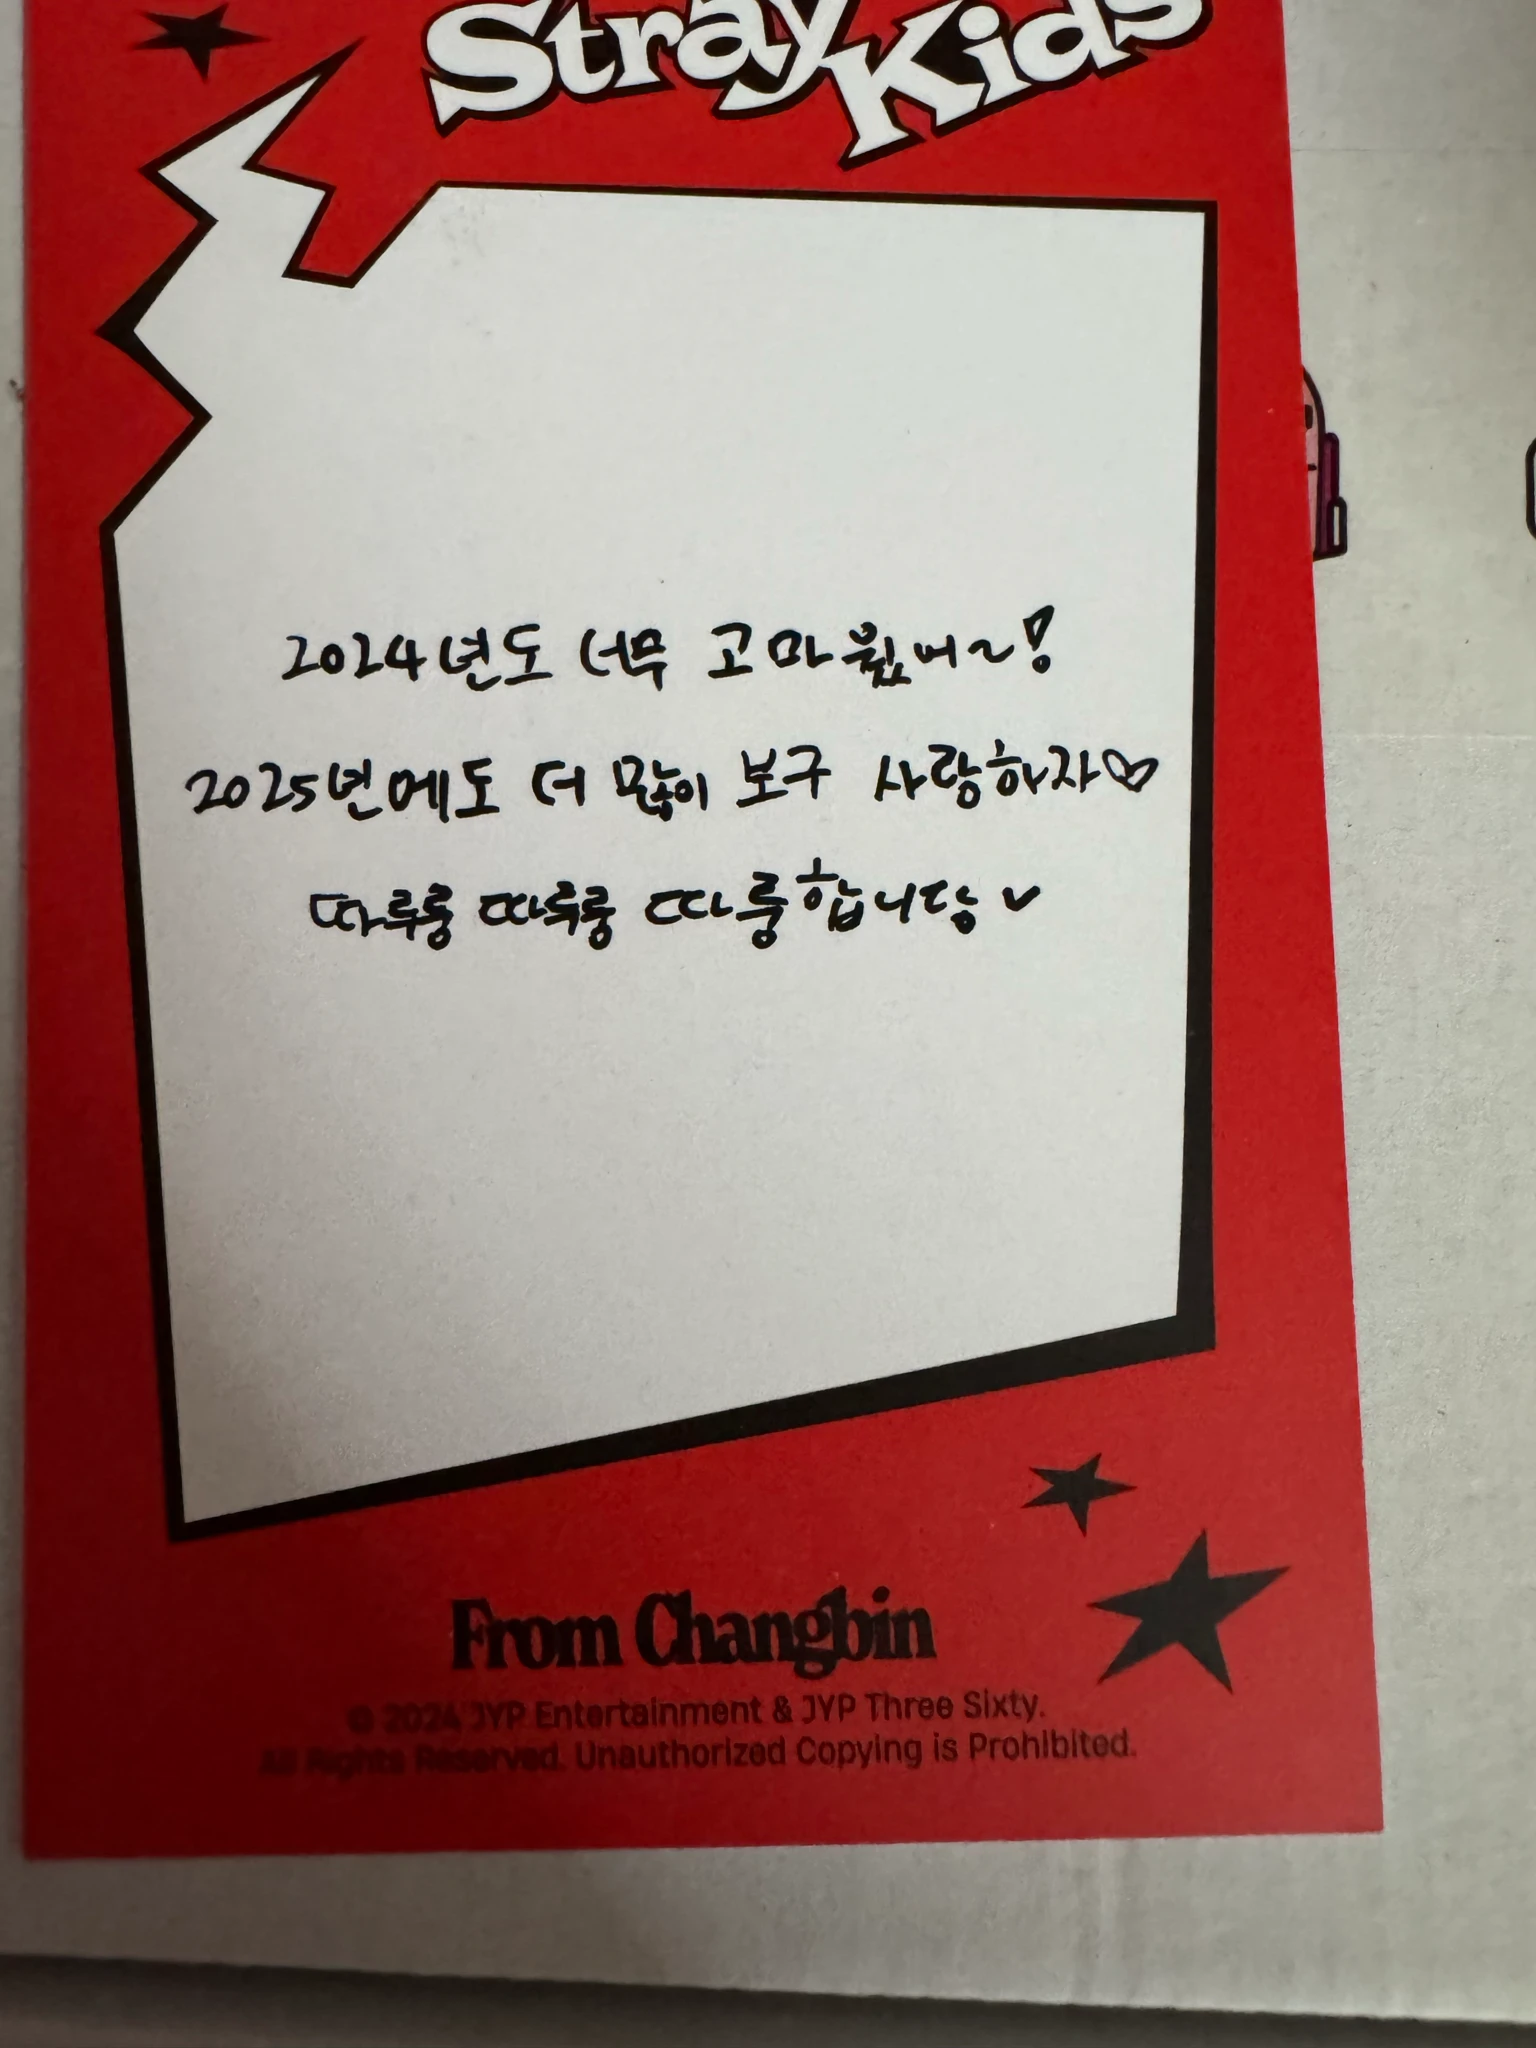 Stray Kids
2024년도 너무 고마웠버~!
2025년에도 더 많이 보구 사랑하자♡
따루룽 따루룽 따룽합니당 ✓
From Changbin
© 2024 JYP Entertainment & JYP Three Sixty.
All Rights Reserved. Unauthorized Copying is Prohibited.